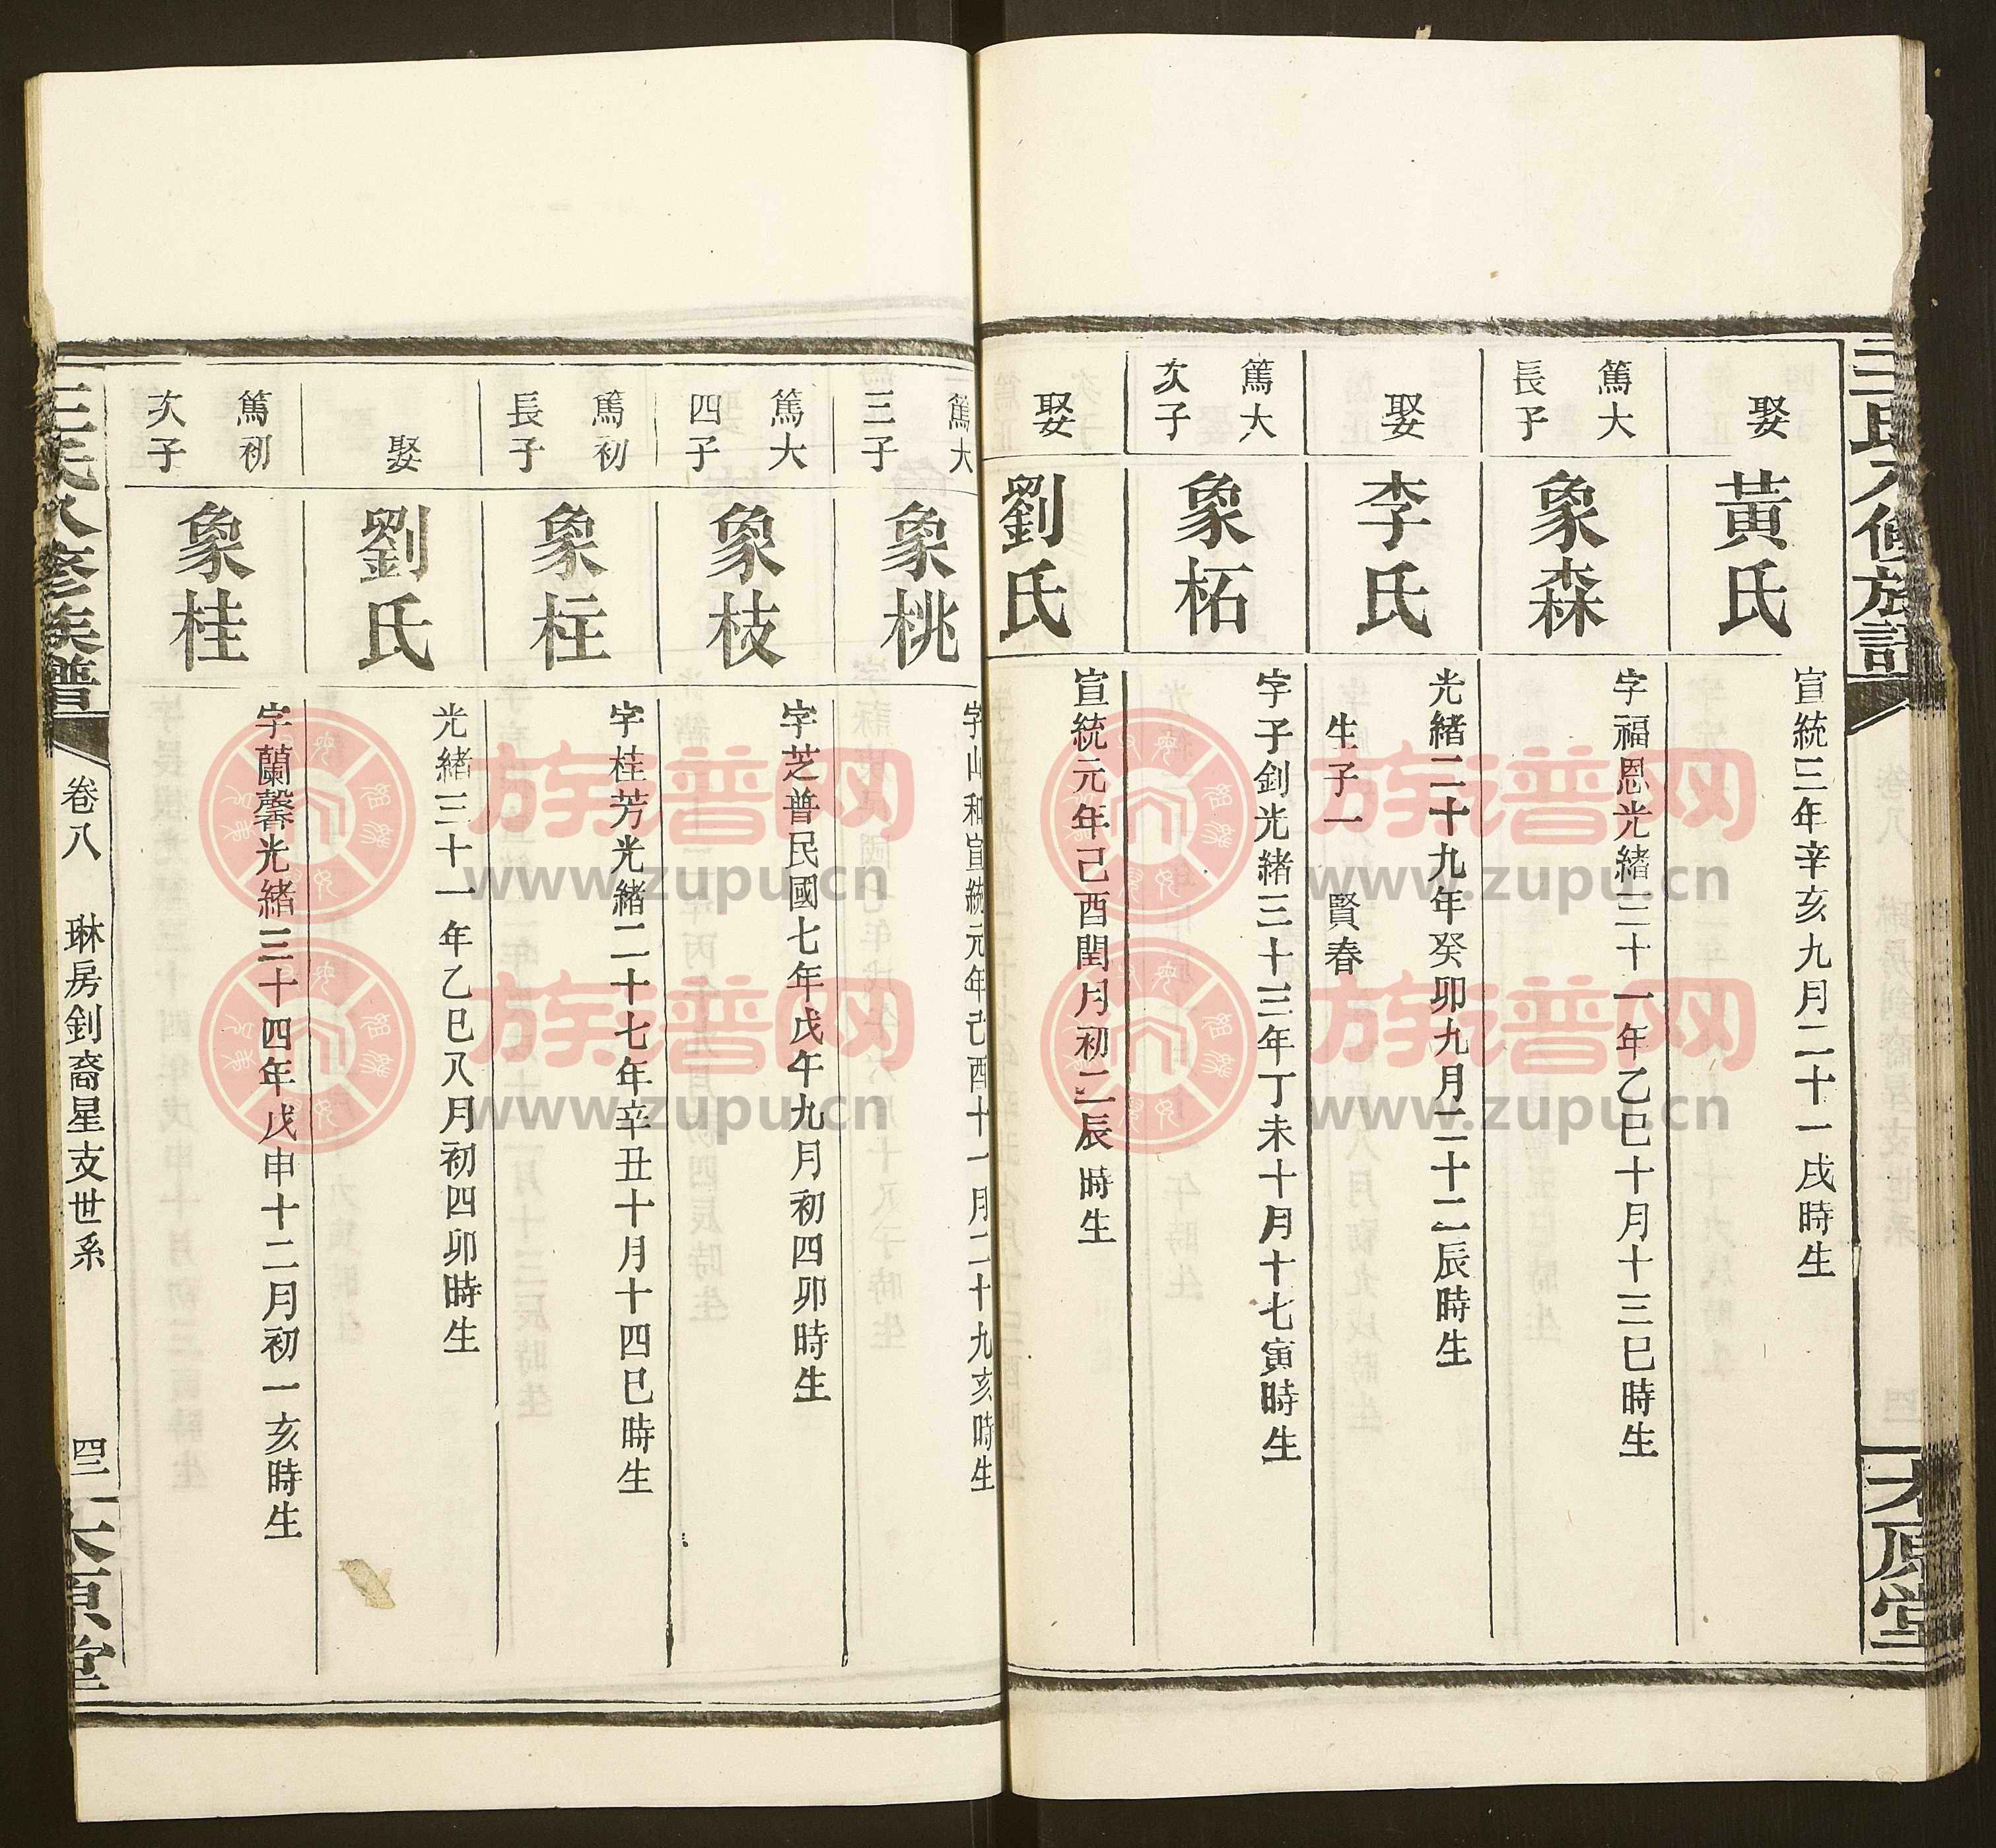 王氏八修族譜
太原堂
娶
黃氏
宣統三年辛亥九月二十一戌時生
篤大
長子
象森
字福恩光緒三十一年乙巳十月十三巳時生
娶
李氏
光緒二十九年癸卯九月二十二辰時生
生子一 賢春
篤大
次子
象柘
字子釗光緒三十三年丁未十月十七寅時生
娶
劉氏
宣統元年己酉閏月初二辰時生
篤大
三子
象桃
字山和宣統元年己酉十一月二十九亥時生
篤大
四子
象枝
字芝普民國七年戊午九月初四卯時生
篤初
長子
象枉
字桂芳光緒二十七年辛丑十月十四巳時生
娶
劉氏
光緒三十一年乙巳八月初四卯時生
篤初
次子
象桂
字蘭馨光緒三十四年戊申十二月初一亥時生
王氏八修族譜
卷八 琳房釗裔星支世系
太原堂
族譜网
www.zupu.cn
族譜网
www.zupu.cn
族譜网
www.zupu.cn
族譜网
www.zupu.cn